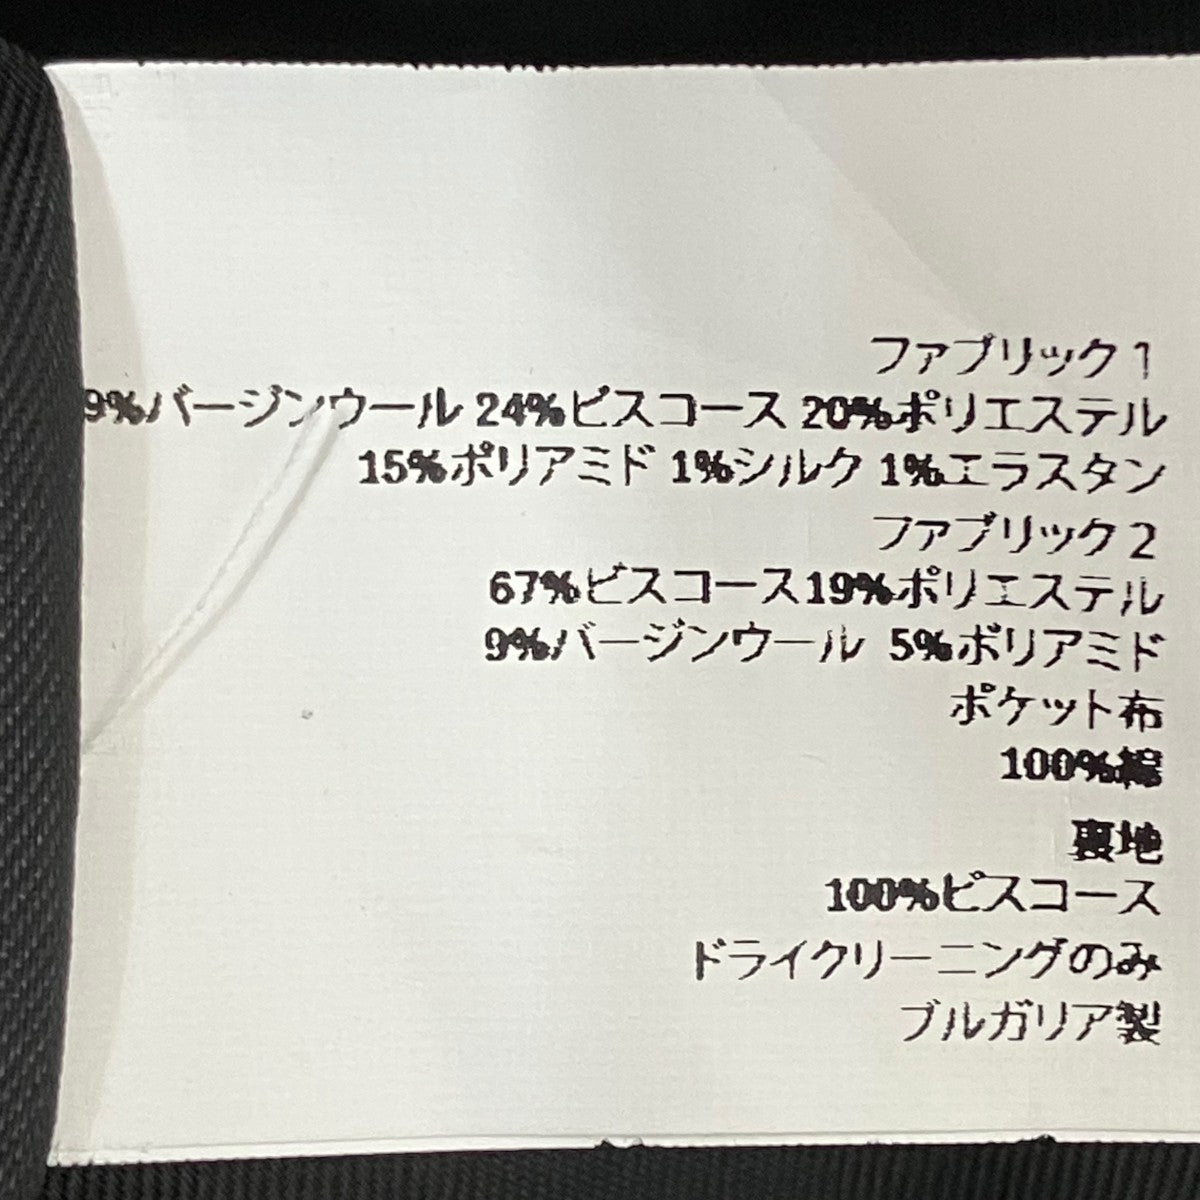 ファブリック 1
9%バージンウール 24%ビスコース 20%ポリエステル
15%ポリアミド 1%シルク 1%エラスタン
ファブリック 2
67%ビスコース19%ポリエステル
9%バージンウール 5%ポリアミド
ポケット布
100%綿
裏地
100%ビスコース
ドライクリーニングのみ
ブルガリア製